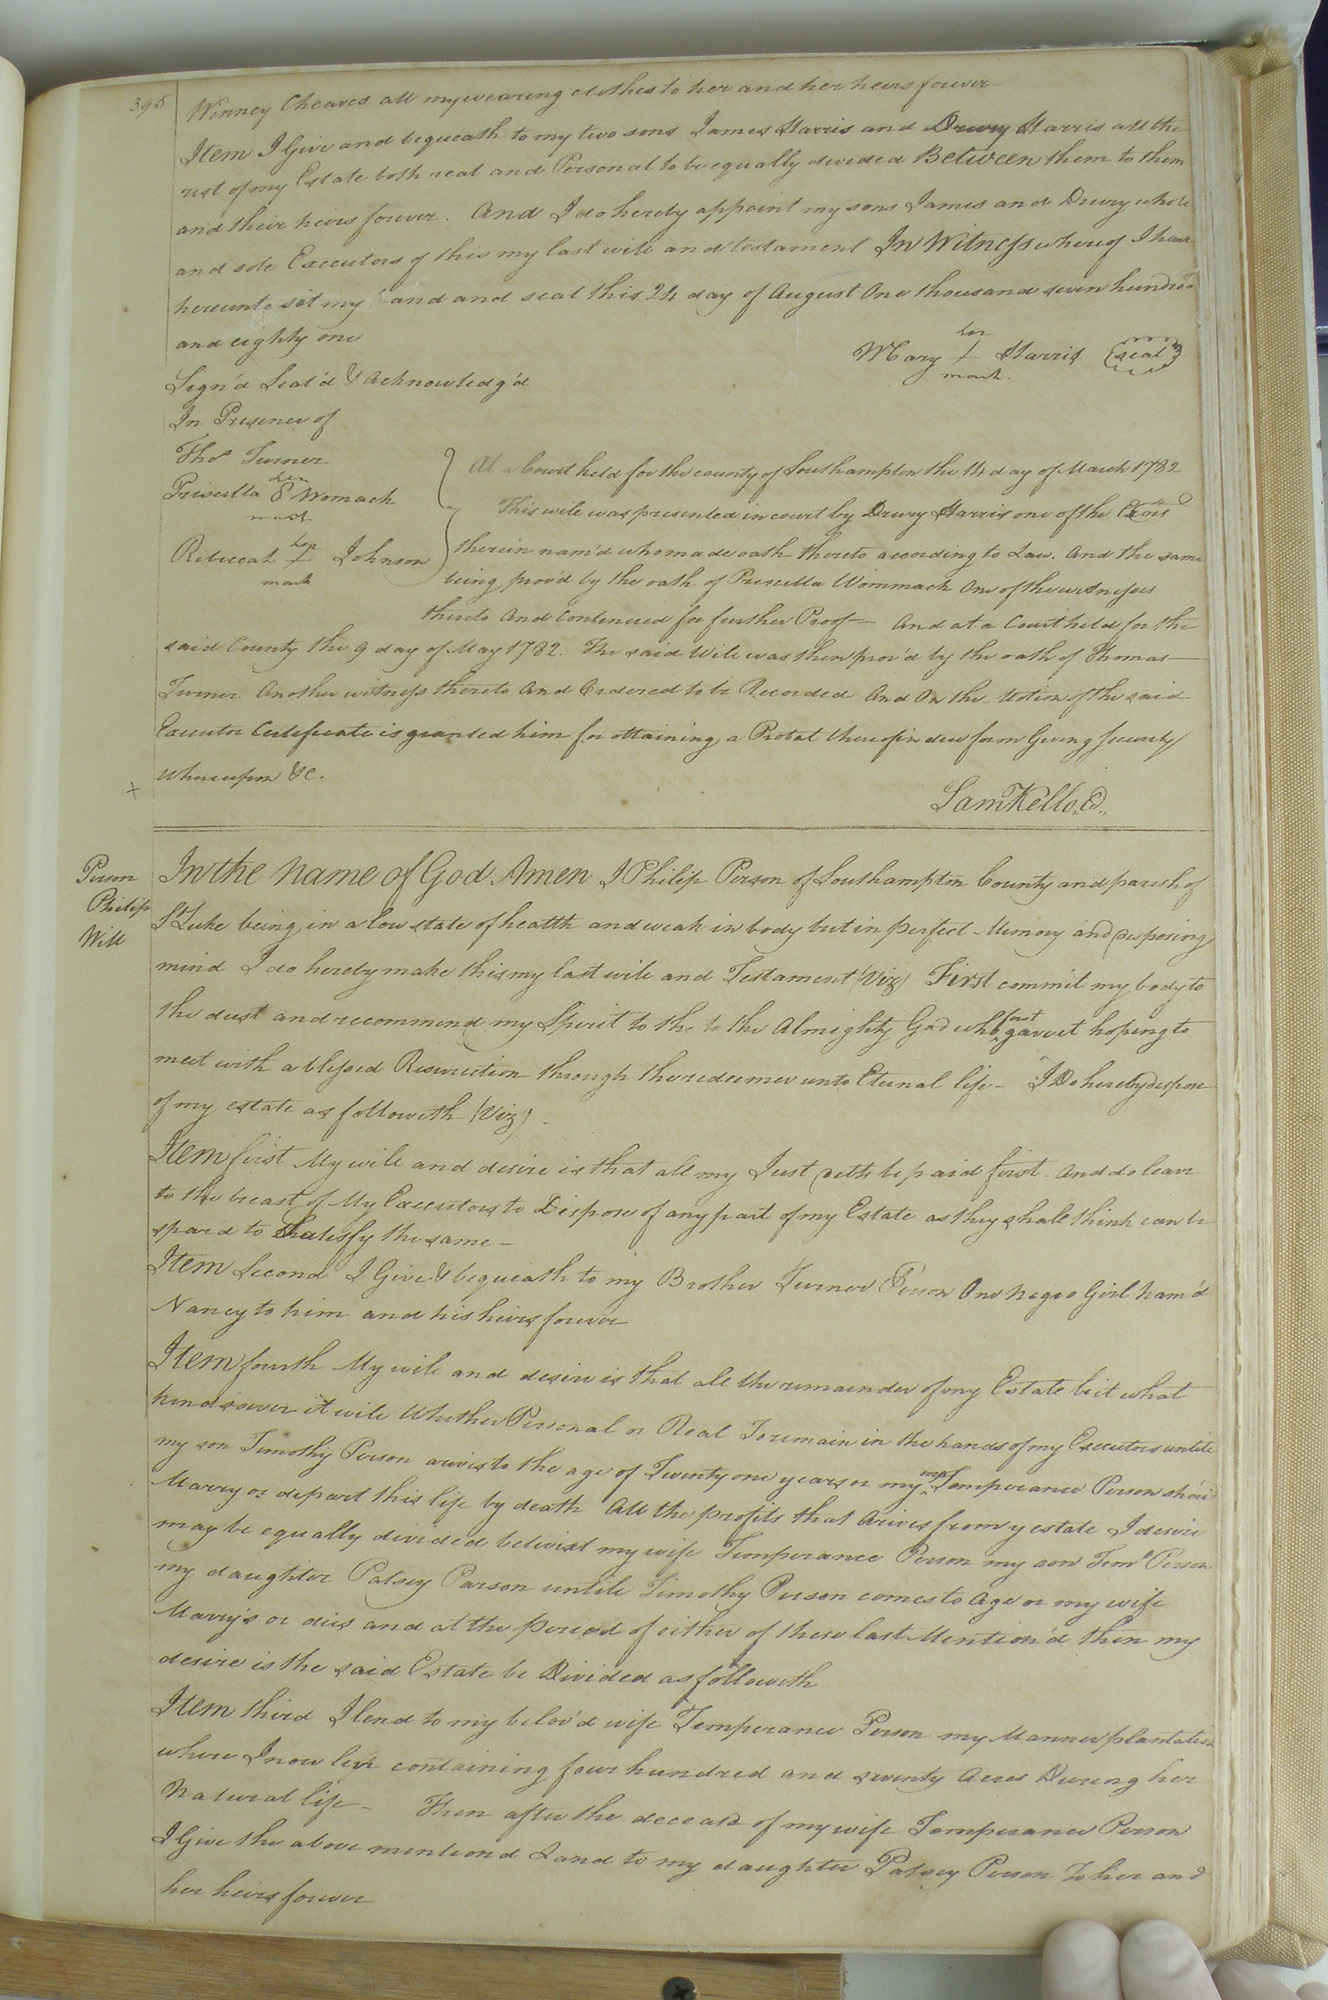 395
Winney Cheaves all my wearing clothes to her and her heirs forever
Item I Give and bequeath to my two sons James Harris and Drury Harris all the
rest of my Estate both real and Personal to be equally devided Between them to them
and their heirs forever. And I do hereby appoint my sons James and Drury whole
and sole Executors of this my last will and testament In Witness whereof I have
hereunto set my hand and seal this 24 day of August One thousand seven hundred
and eighty one
her
Mary + Harris (seal)
mark.
Sign'd Seal'd & Acknowledg'd
In Presence of
Thos. Turner
her
Priscilla P Womack
mark
her
Rebeccah + Johnson
mark
At a Court held for the county of Southampton the 14 day of March 1782
This will was presented in court by Drury Harris one of the Exors
therein nam'd who made oath thereto according to Law. And the same
being prov'd by the oath of Priscilla Wommack One of the witnesses
thereto And Continued for further Proof — And at a Court held for the
said County the 9 day of May 1782. The said Will was then prov'd by the oath of Thomas
Turner Another witness thereto And Ordered to be Recorded And On the Motion of the said
Executor Certificate is granted him for obtaining a Probat thereof in due form Giving security
Whereupon &c.
+
Sam Kello, C.
Person
Philip
Will
In the Name of God Amen I Philip Person of Southampton County and parish of
St Luke being in a low state of health and weak in body but in perfect Memory and disposing
mind I do hereby make this my last will and Testament (Viz) First commit my body to
the dust and recommend my Spirit to the to the Almighty God who first gave it hoping to
meet with a blessed Resurrection through the redeemer unto Eternal life — I Do hereby dispose
of my estate as followeth (Viz) —
Item first My will and desire is that all my Just debts be paid first. And do leave
to the breast of My Executors to Dispose of any part of my Estate as they shall think can be
spaird to Shatisfy the same —
Item Second I Give & bequeath to my Brother Turner Person One negro Girl Nam'd
Nancy to him and his heirs forever
Item fourth My will and desire is that all the remainder of my Estate be it what
kind soever it will Whether Personal or Real To remain in the hands of my Executors untill
my son Timothy Person arives to the age of Twenty one years or my wife Temperance Person should
Marry or depart this life by death All the profits that Arives from y estate I desire
may be equally divided betwixt my wife Temperance Person my son Timo Person
my daughter Patsey Parson untill Timothy Person comes to Age or my wife
Marrys or dies and at the period of either of these last Mention'd then my
desire is the said Estate be Divided as followeth
Item third I lend to my belov'd wife Temperance Person my Manner plantation
where I now live containing four hundred and seventy Acres During her
Natural life — Then after the deceasd of my wife Temperance Person
I Give the above mentiond Land to my daughter Patsey Person To her and
her heirs forever